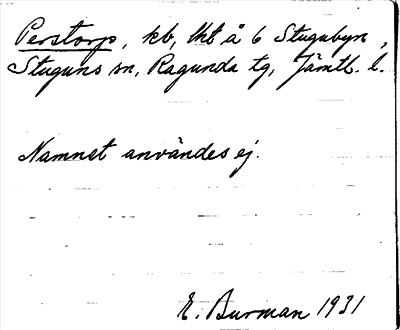 Perstorp, kb, lht å 6 Stugubyn,
Stuguns sn, Ragunda tg, Jämtl. l.
Namnet användes ej.
E. Burman 1931